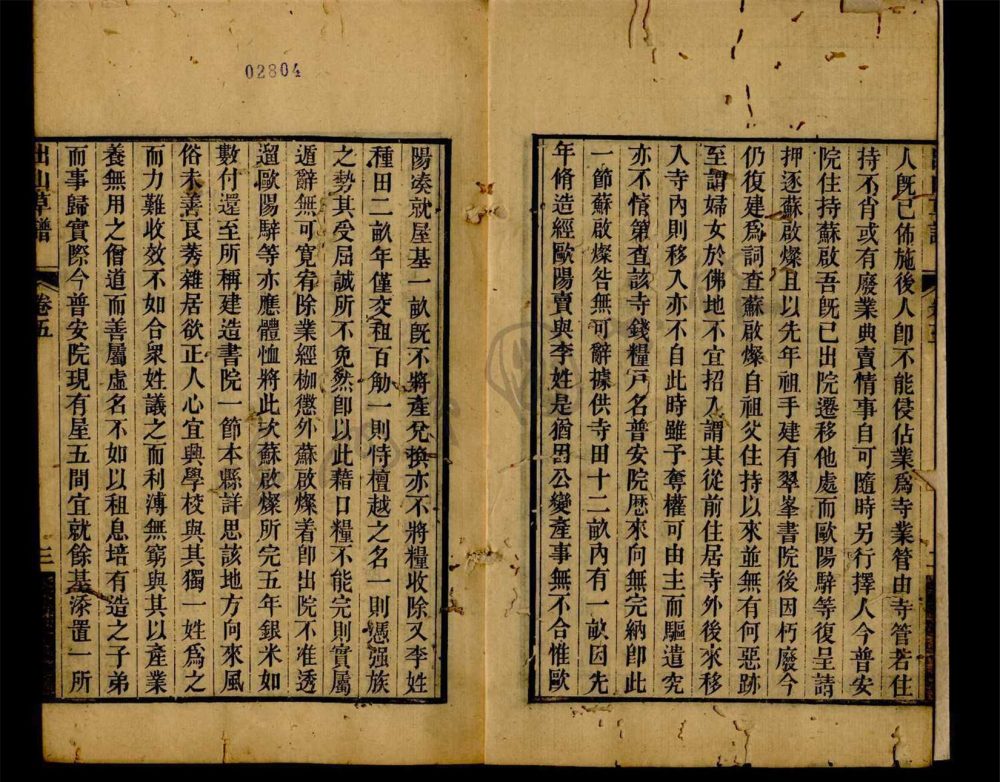 02804
人既已佈施後人即不能侵佔業爲寺業管由寺管若住
持不肖或有廢業典賣情事自可隨時另行擇人今普安
院住持蘇啟吾既已出院遷移他處而歐陽騂等復呈請
押逐蘇啟燦且以先年祖手建有翠峯書院後因朽廢今
仍復建爲詞查蘇啟燦自祖父住持以來並無有何惡跡
至謂婦女於佛地不宜招入謂其從前住居寺外後來移
入寺內則移入亦不自此時雖予奪權可由主而驅遣究
亦不情第查該寺錢糧戶名普安院歷來向無完納即此
一節蘇啟燦咎無可辭據供寺田十二畝內有一畝因先
年脩造經歐陽賣與李姓是猶因公變產事無不合惟歐
陽湊就屋基一畝既不將產兌換亦不將糧收除又李姓
種田二畝年僅交租百觔一則恃檀越之名一則憑强族
之勢其受屈誠所不免然即以此藉口糧不能完則實屬
遁辭無可寬宥除業經枷懲外蘇啟燦着即出院不准透
遛歐陽騂等亦應體恤將此次蘇啟燦所完五年銀米如
數付還至所稱建造書院一節本縣詳思該地方向來風
俗未善艮莠雜居欲正人心宜興學校與其獨一姓爲之
而力難收效不如合衆姓議之而利溥無窮與其以產業
養無用之僧道而善屬虛名不如以租息培有造之子弟
而事歸實際今普安院現有屋五間宜就餘基添置一所
出山草譜
卷五
三